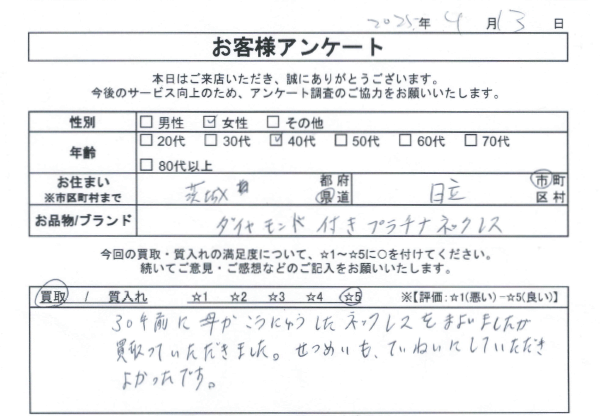 2025年 4月13日
お客様アンケート
本日はご来店いただき、誠にありがとうございます。
今後のサービス向上のため、アンケート調査のご協力をお願いいたします。
性別 □男性 ☑女性 □その他
年齢 □20代 □30代 ☑40代 □50代 □60代 □70代
□80代以上
お住まい ※市区町村まで 茨城 都府県道 日立 市町区村
お品物/ブランド ダイヤモンド付きプラチナネックレス
今回の買取・質入れの満足度について、☆1〜☆5に○を付けてください。
続いてご意見・ご感想などのご記入をお願いいたします。
買取 / 質入れ ☆1 ☆2 ☆3 ☆4 ☆5 ※【評価:☆1(悪い)−☆5(良い)】
30年前に母がこうにゅうしたネックレスをまよいましたが
買取っていただきました。せつめいも、ていねいにしていただき
よかったです。